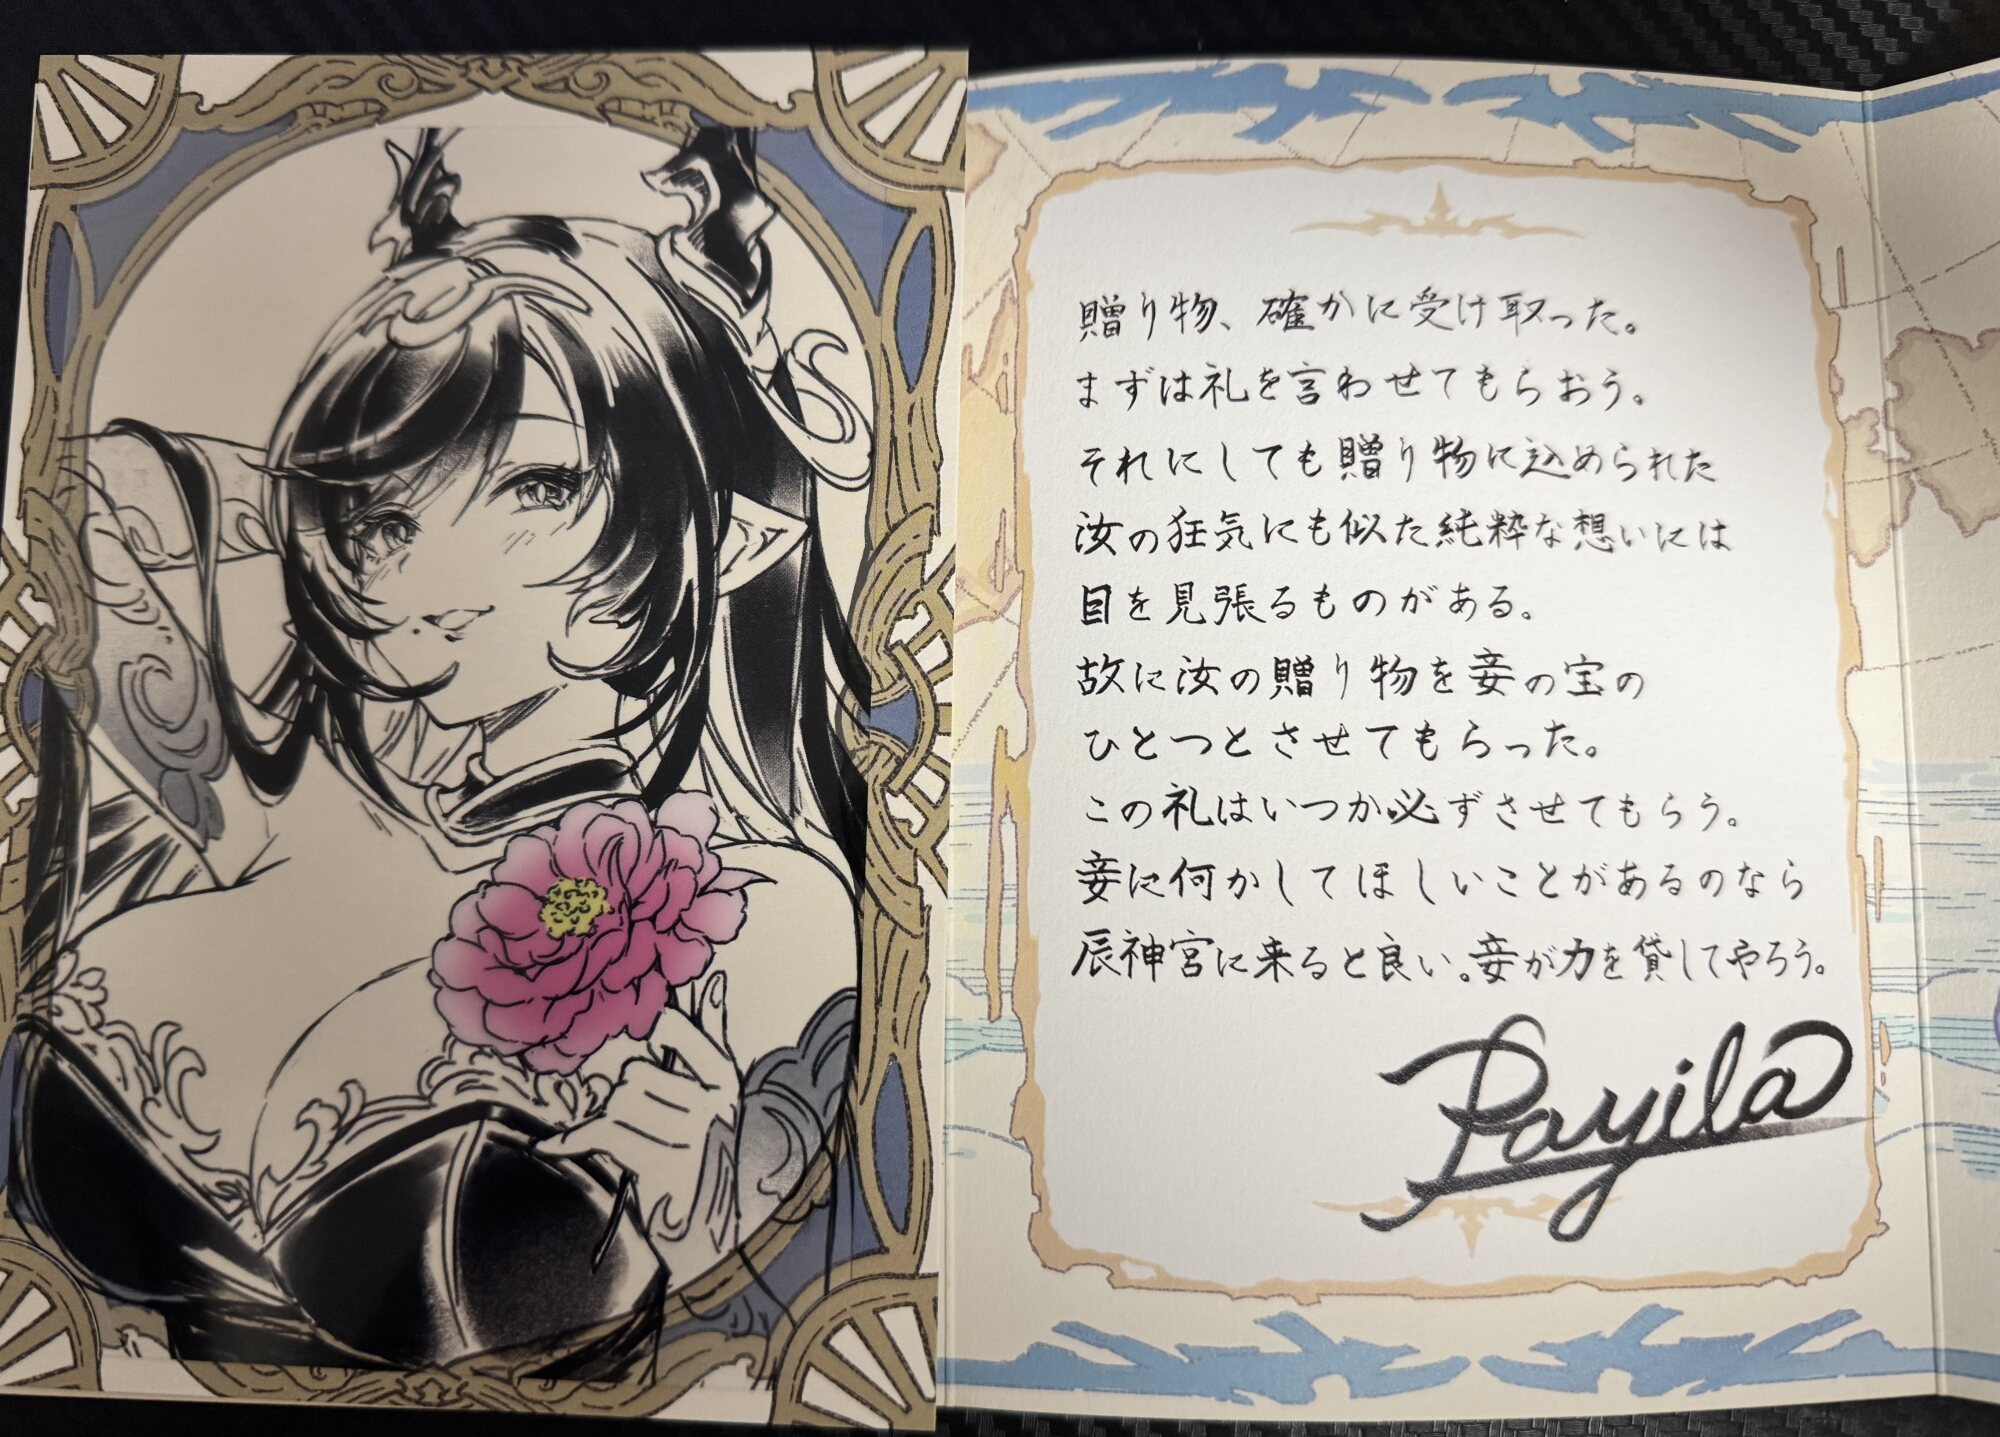 贈り物、確かに受け取った。
まずは礼を言わせてもらおう。
それにしても贈り物に込められた
汝の狂気にも似た純粋な想いには
目を見張るものがある。
故に汝の贈り物を妾の宝の
ひとつとさせてもらった。
この礼はいつか必ずさせてもらう。
妾に何かしてほしいことがあるのなら
辰神宮に来ると良い。妾が力を貸してやろう。
Payila